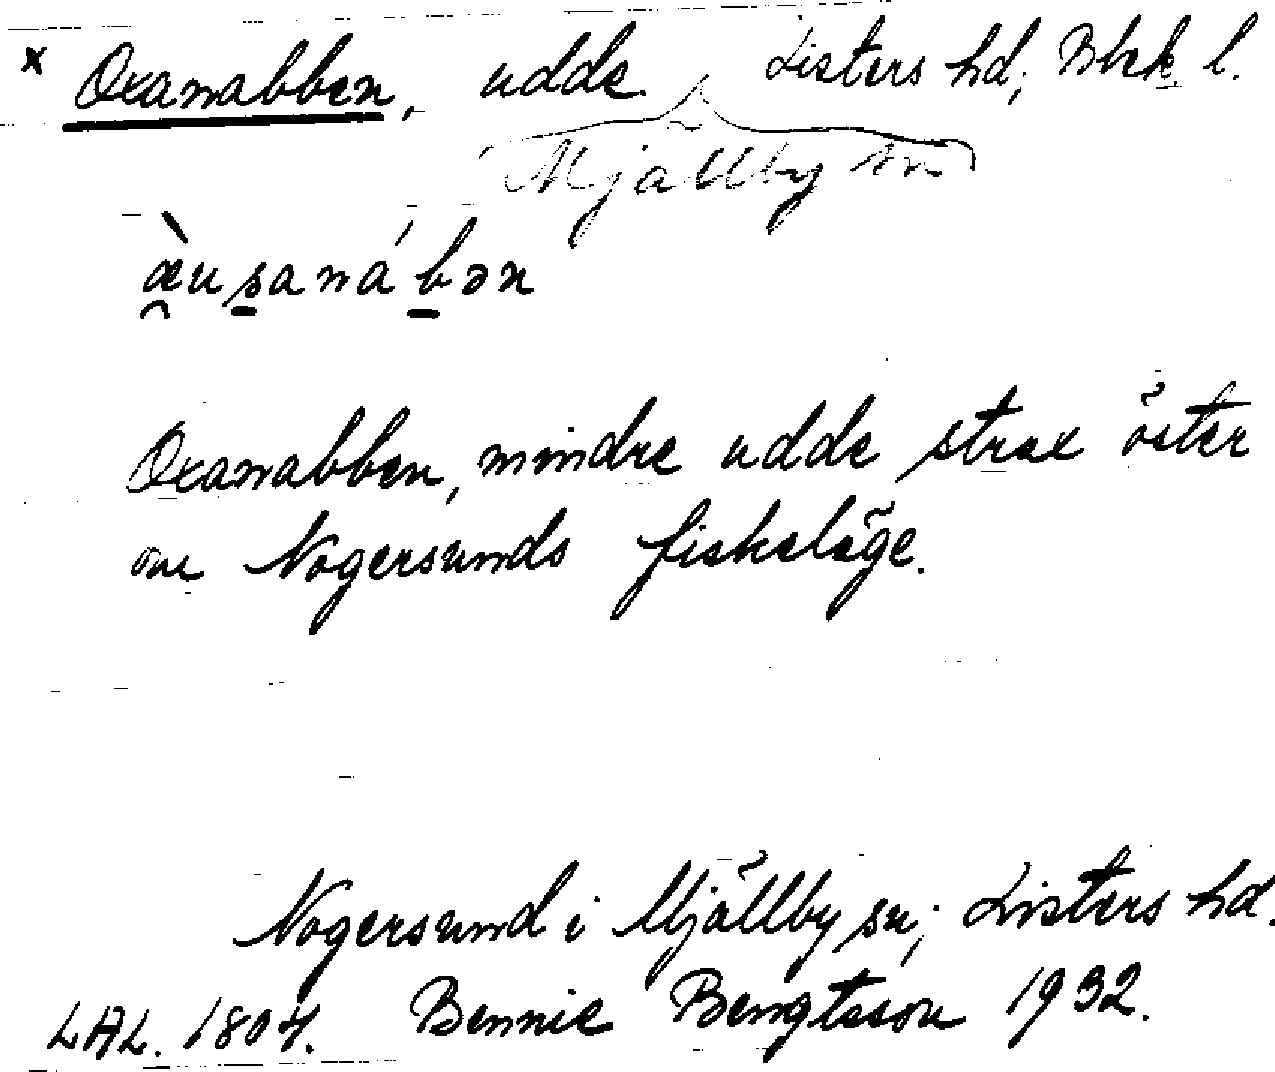 x Oxanabben, udde Listers hd; Blek. l.
Mjällby sn
àusaná bən
Oxanabben, mindre udde strax öster
om Nogersunds fiskeläge.
Nogersund i Mjällby sn; Listers hd.
LAL. 1804. Bennie Bengtsson 1932.